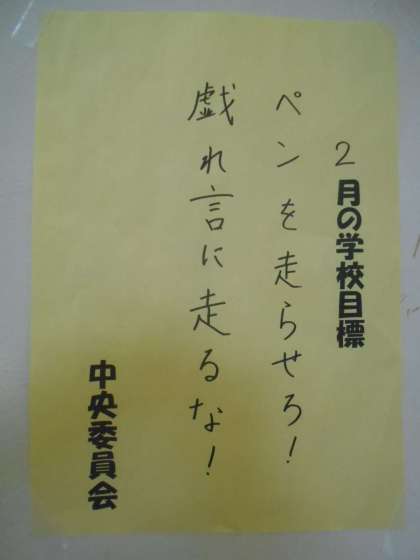 2月の学校目標
ペンを走らせろ!
戯れ言に走るな!
中央委員会